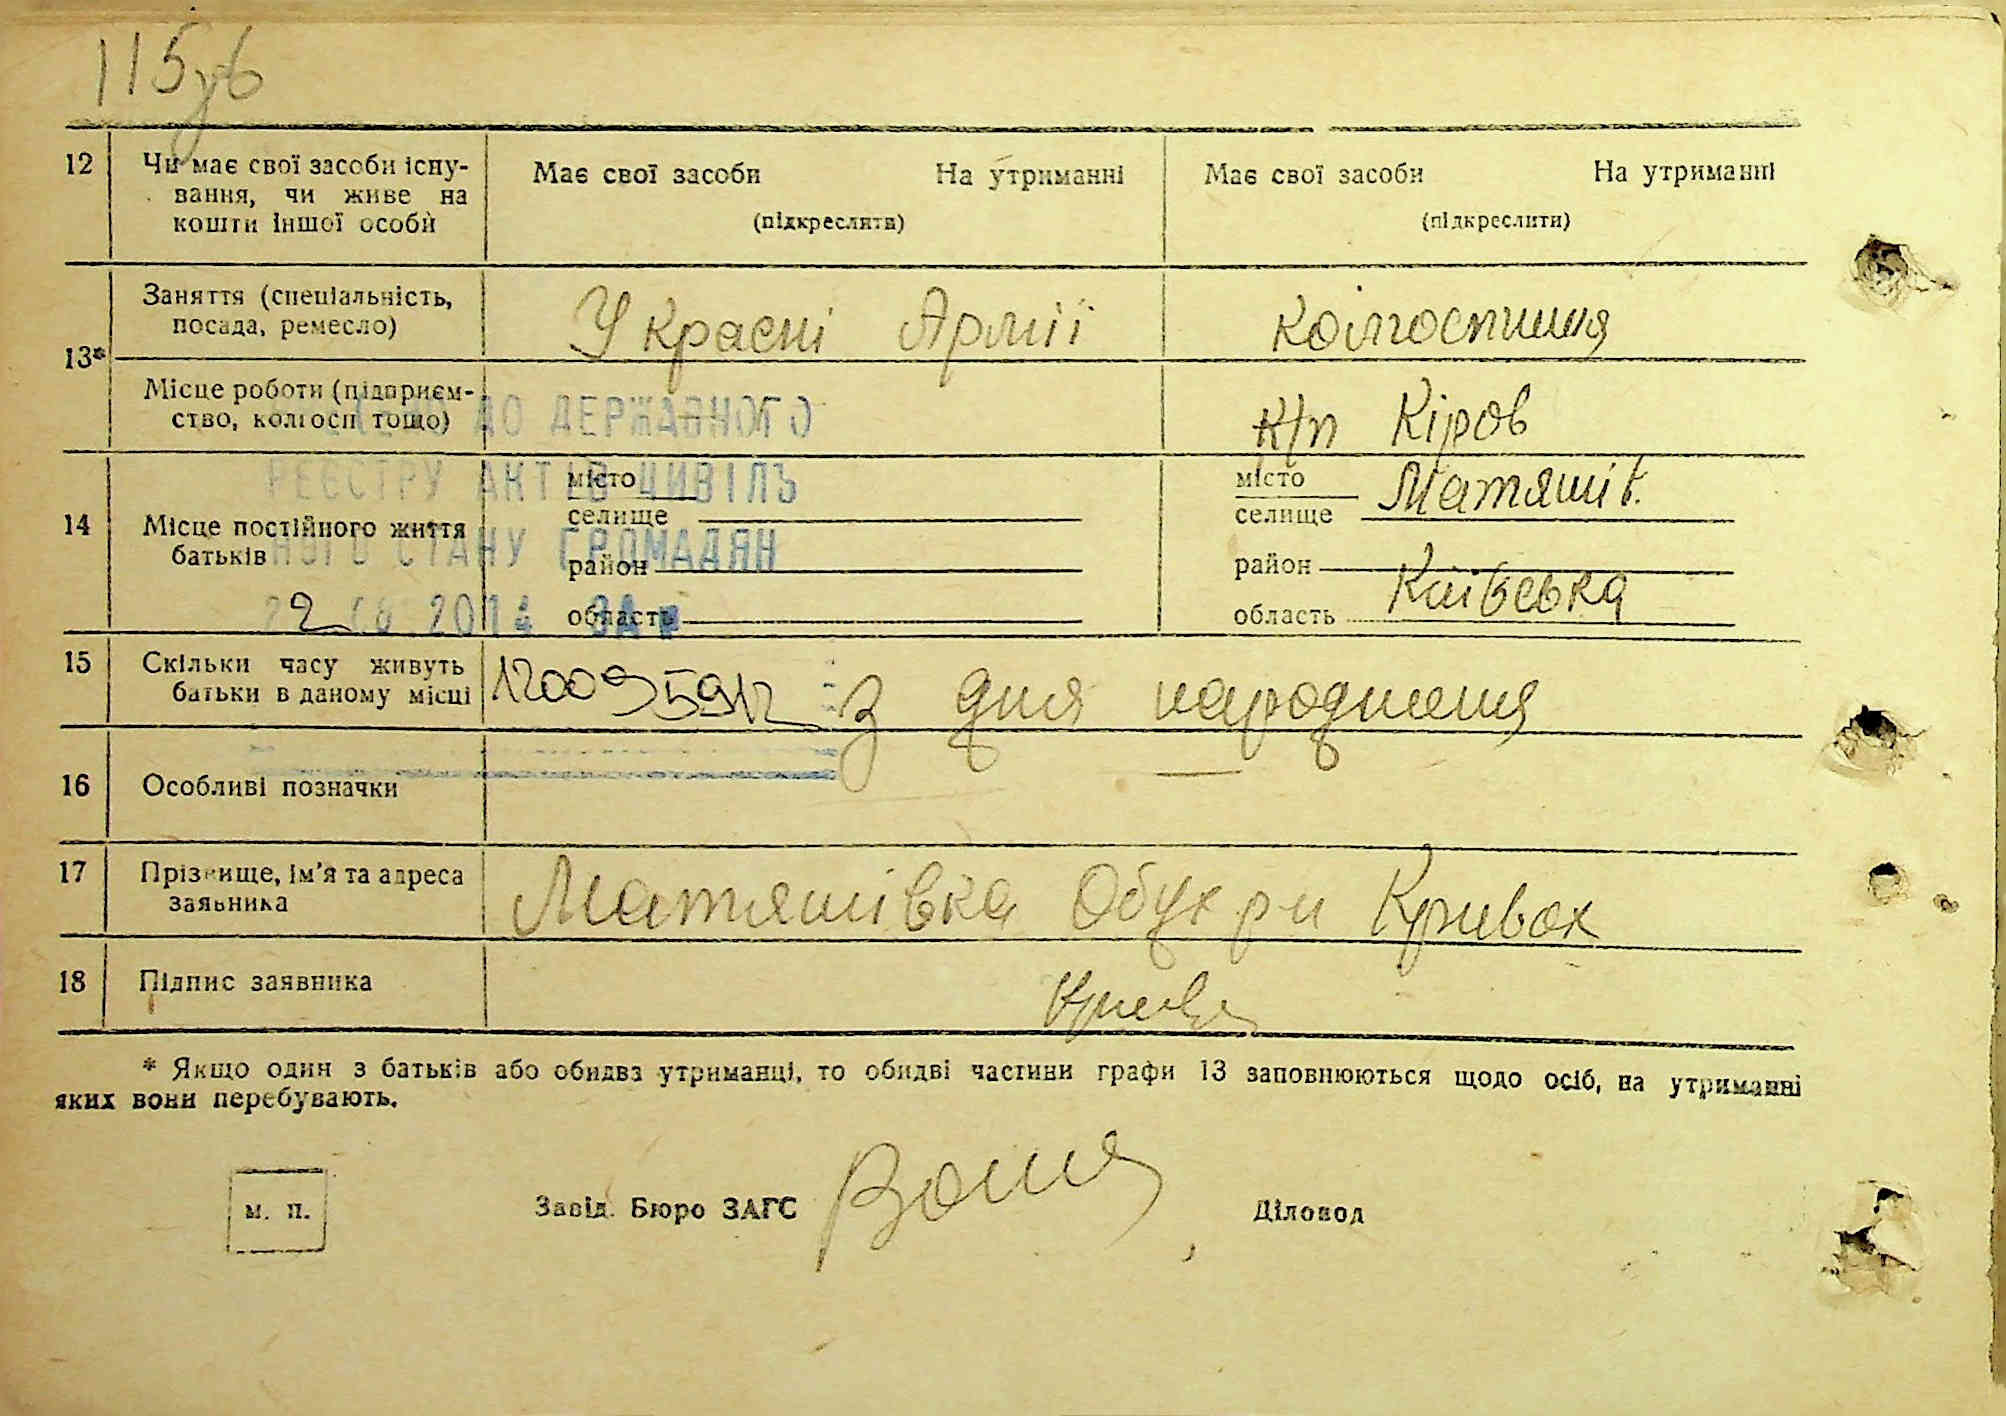 115зв
12 Чи має свої засоби існу- Має свої засоби На утриманні Має свої засоби На утриманні
вання, чи живе на
кошти іншої особи (підкреслити) (підкреслити)
Заняття (спеціальність, У Красні Армії колгоспниця
посада, ремесло)
13*
Місце роботи (підприєм- к/п Кіров
ство, колгосп тощо)
ДО ДЕРЖАВНОГО
РЕЄСТРУ АКТІВ ЦИВІЛЬ
НОГО СТАНУ ГРОМАДЯН
2014 ЗА №
12009 5912
14 Місце постійного життя
батьків
місто місто Матяшів.
селище селище
район район
область область Київська
15 Скільки часу живуть з дня народження
батьки в даному місці
16 Особливі позначки
17 Прізвище, ім'я та адреса Матяшівка Обух р-н
заявника
18 Підпис заявника
* Якщо один з батьків або обидва утриманці, то обидві частини графи 13 заповнюються щодо осіб, на утриманні
яких вони перебувають.
м. п. Завід. Бюро ЗАГС Діловод